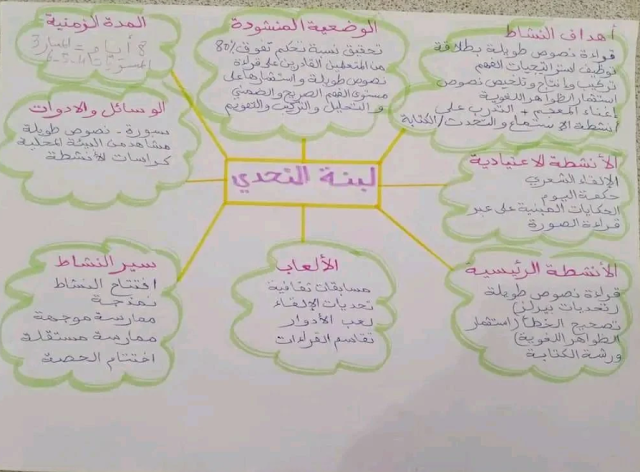 أهداف النشاط
قراءة نصوص طويلة بطلاقة
توظيف استراتيجيات الفهم
تركيب وإنتاج وتلخيص نصوص
استثمار الظواهر اللغوية
إغناء المعجم + التدرب على
أنشطة الاستماع والتحدث/الكتابة
الوضعية المنشودة
تحقيق نسبة تحكم تفوق 80%
من المتعلمين القادرين على قراءة
نصوص طويلة واستثمارها على
مستوى الفهم الصريح والضمني
و التحليل والتركيب والتقويم
المدة الزمنية
8 أيام = المسار 3
الوسائل والادوات
سبورة - نصوص طويلة
مشاهد من البيئة المحلية
كراسات الأنشطة
لبنة التحدي
الأنشطة الاعتيادية
الإلقاء الشعري
حكمة اليوم
الحكايات المبنية على عبر
قراءة الصورة
الأنشطة الرئيسية
قراءة نصوص طويلة
(تحديات بيرلز)
تصحيح الخطأ (استثمار
الظواهر اللغوية)
ورشة الكتابة
الألعاب
مسابقات ثقافية
تحديات الإلقاء
لعب الأدوار
تقاسم القراءات
سير النشاط
افتتاح النشاط
نمذجة
ممارسة موجهة
ممارسة مستقلة
اختتام الحصة